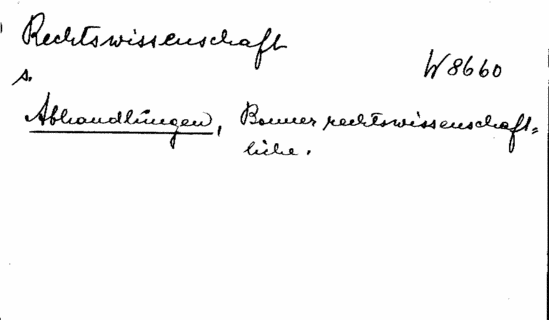 Rechtswissenschaft
W 8660
s.
Abhandlungen, Bonner rechtswissenschaft=
liche.